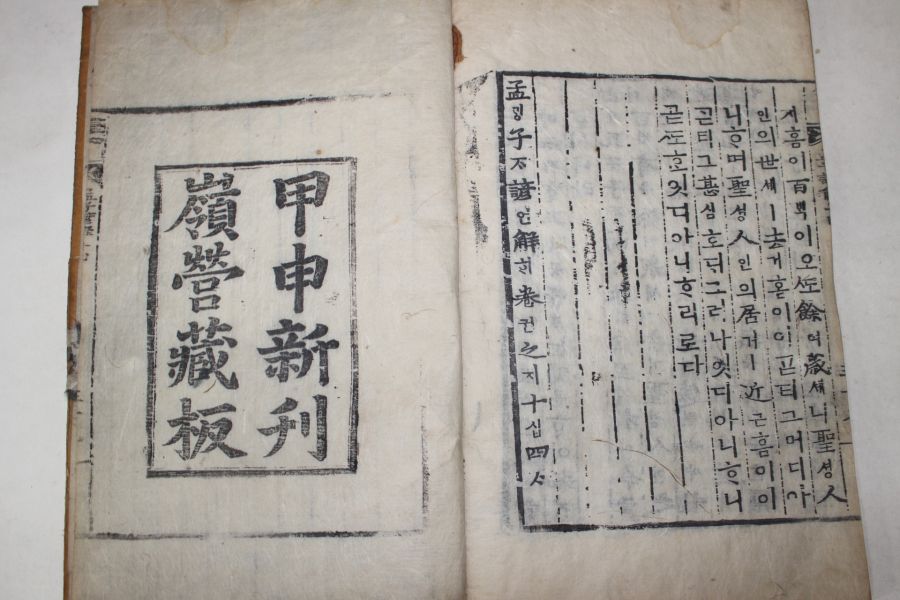 지흠이百ᄇᆡᆨ이오ᄯᅩ餘여歲셰니聖셩人
인의世셰ㅣ去거홈이이ᄀᆞᆮ티그머디아
니ᄒᆞ며聖셩人인의居거ㅣ近근홈이이
ᄀᆞᆮ티그甚심호ᄃᆡ그러나잇디아니ᄒᆞ니
곧ᄯᅩᄒᆞᆫ잇디아니ᄒᆞ리로다
孟ᄆᆡᆼ子ᄌᆞ諺언解ᄒᆡ卷권之지十십四ᄉᆞ
甲申新刊
嶺營藏板